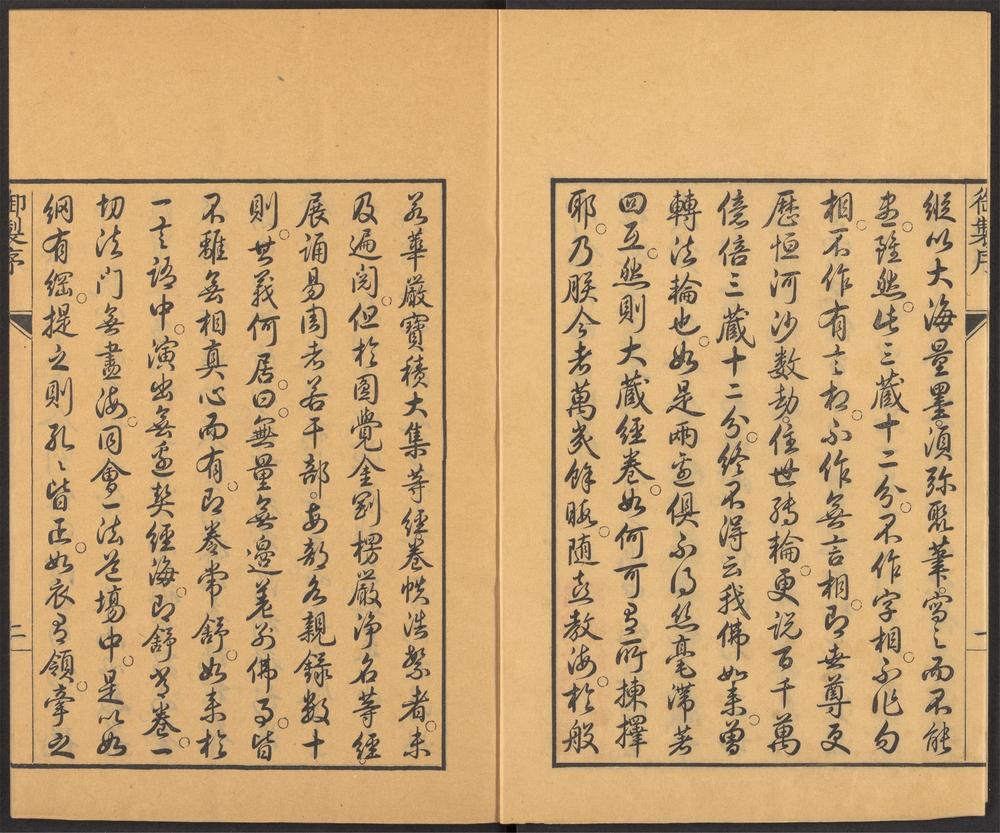 御製序
一
縱以大海量墨須弥聚筆寫之而不能
盡雖然此三藏十二分不作字相不作句
相不作有言相不作無言相即世尊更
歷恒河沙數劫住世轉輪更説百千萬
億倍三藏十二分終不得云我佛如来曽
轉法輪也如是兩邊俱不得絲毫滞著
回互然則大藏經卷如何可有所揀擇
耶乃朕今者萬幾餘暇随喜教海於般
若華嚴寶積大集等經卷帙浩繁者未
及遍閲但於圓覺金剛楞嚴浄名等經
展誦易周者若干部每部各親録數十
則其義何居曰無量無邊差別佛事皆
不離無相真心而有即卷常舒如来於
一言語中演出無邊契經海即舒常卷一
切法門無盡海同會一法道場中是以如
綱有綱提之則孔〻皆正如衣有領牽之
御製序
二